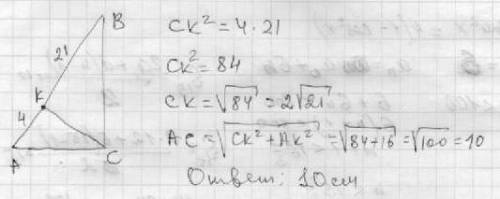 B
21
K
4
A
C
CK² = 4 · 21
CK² = 84
CK = √84 = 2√21
AC = √(CK² + AK²) = √(84+16) = √100 = 10
Ответ: 10 см